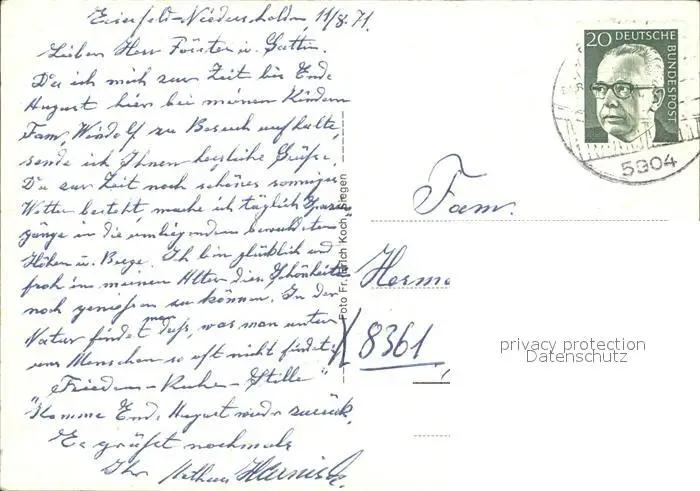 Eiserfeld-Niederschelden, 11/8. 71.
Lieben Herr Förster u. Gattin.
Da ich mich zur Zeit bis Ende
August hier bei meinen Kindern
Fam. Windolf zu Besuch aufhalte,
sende ich Ihnen herzliche Grüße.
Da zur Zeit noch schönes sonniges
Wetter besteht, mache ich täglich Spazier-
gänge in die umliegenden bewaldeten
Höhen u. Berge. Ich bin glücklich und
froh in meinen Alter dies Schönheiten
noch genießen zu können. In der
Natur findet man daß, was man unter
uns Menschen so oft nicht findet:
Frieden-Ruhe-Stille"
Komme Ende August wieder zurück.
Es grüßt nochmals
Ihr
Foto Fr. Koch, Siegen
20 DEUTSCHE
BUNDESPOST
5904
Fam.
Herm
8361
privacy protection
Datenschutz